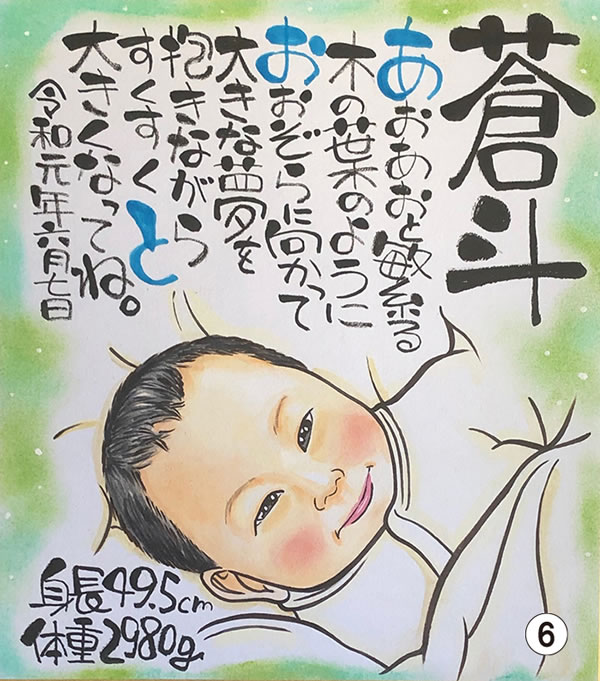 蒼斗
あおあおと繁る
木の葉のように
おおぞらに向かって
大きな夢を
抱きながら
すくすくと
大きくなってね。
令和元年六月七日
身長49.5cm
体重2980g
6